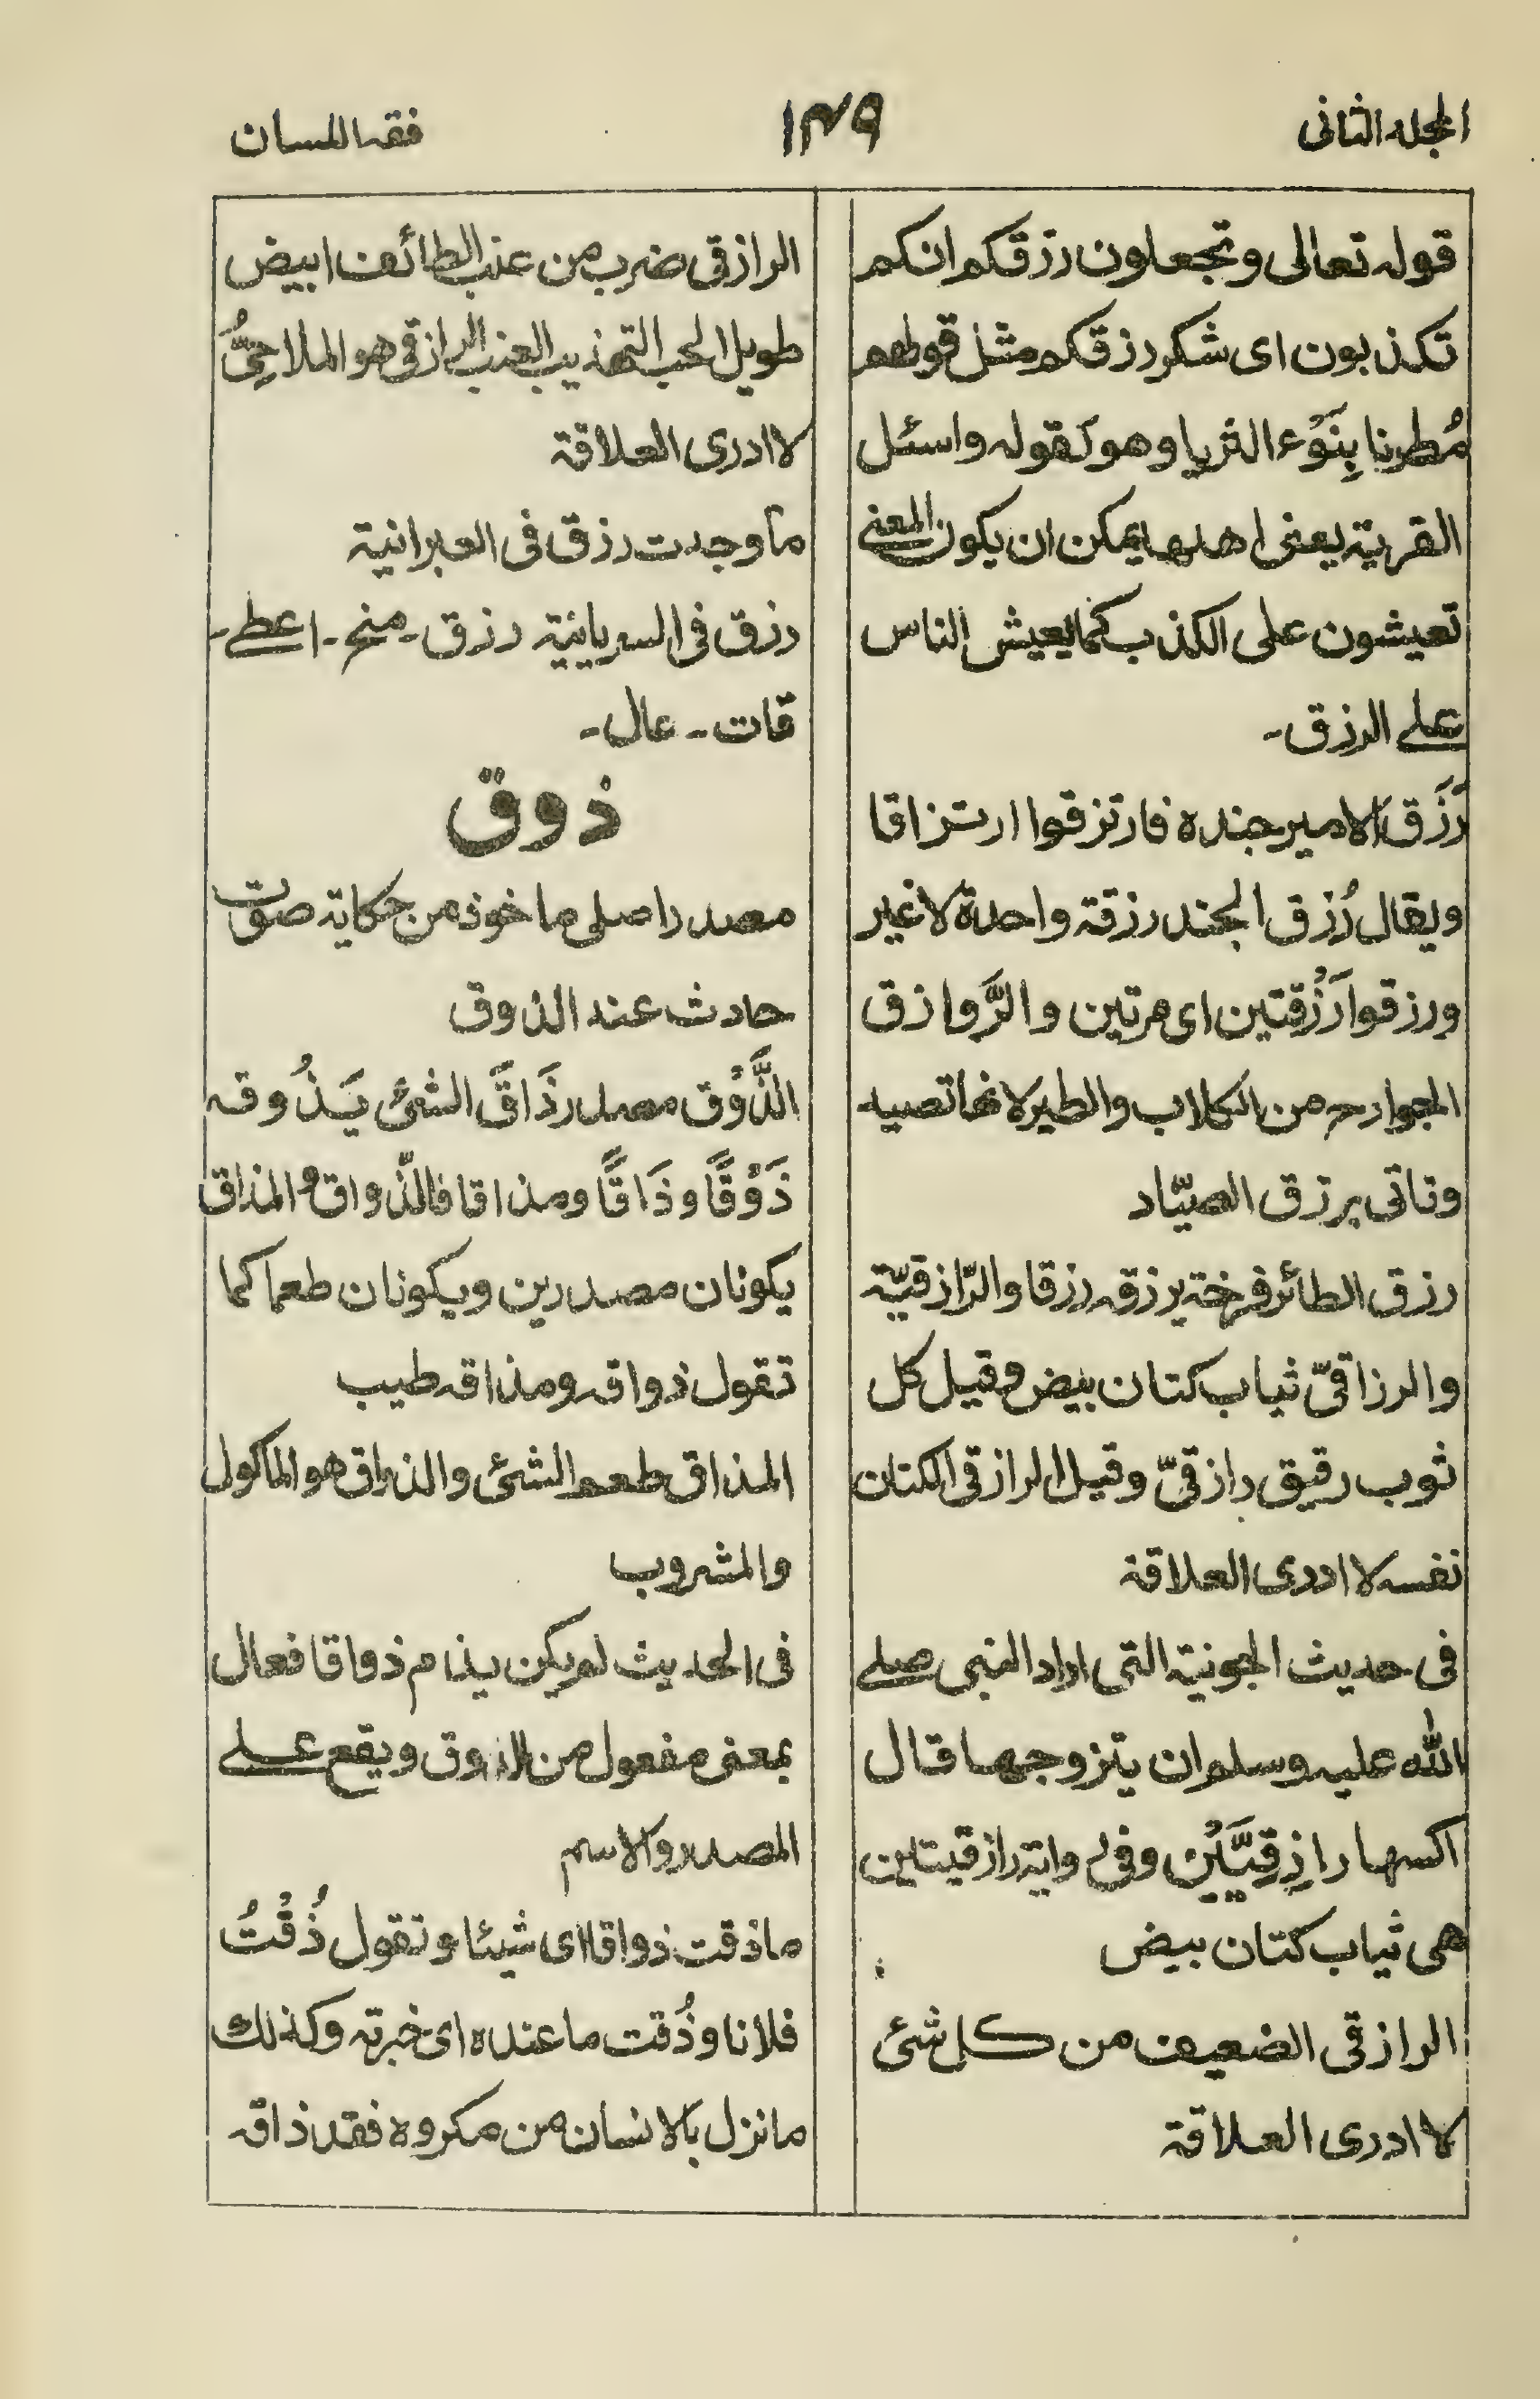 المجلد الثانی
١٣٩
فقه اللسان
قوله تعالی وتجعلون رزقكم انكم
تكذبون ای شكر رزقكم مثل قولهم
مُطرنا بِنَوْء الثريا وهو كقوله واسئل
القرية يعنی اهلها يمكن ان يكون المعنے
تعيشون علی الكذب كما يعيش الناس
علے الرزق۔
رَزَق الامير جنده فارتزقوا ارتزاقا
ويقال رُزق الجند رزقة واحدة لاغير
ورزقوا رَزْقتين ای مرتين والرَّوازق
الجوارح من الكلاب والطير لانها تصيد
وتاتی برزق الصيّاد
رزق الطائر فرخه يرزقه رزقا والرّازقيّة
والرزاقیّ ثياب كتان بيض وقيل كل
ثوب رقيق رازقیّ وقيل الرازقی الكتان
نفسه لا ادری العلاقة
فی حديث الجونية التی اراد النبی صلے
الله عليه وسلم ان يتزوجها قال
اكسها رازِقِيَّيْن وفی رواية رازقيتين
هی ثياب كتان بيض
الرازقی الضعيف من كل شئ
لا ادری العلاقة
الرازقی ضرب من عنب الطائف ابيض
طويل الحب التهذيب العنب الرازقی هو الملاحِیُّ
لا ادری العلاقة
ما وجدت رزق فی العبرانية
رزق فی السريانية رزق۔ منح۔ اعطے۔
قات۔ عال۔
ذوق
مصدر اصلی ماخوذ من حكاية صوت
حادث عند الذوق
الذَّوْق مصدر ذَاقَ الشئ يَذُوقه
ذَوْقًا وذَاقًا ومذاقا فالذّواق والمذاق
يكونان مصدرين ويكونان طعما كما
تقول ذواقه ومذاقه طيب
المذاق طعم الشئ والذواق هو الماكول
والمشروب
فی الحديث لم يكن يذم ذواقا فعال
بمعنی مفعول من الذوق ويقع علے
المصدر والاسم
ماذقت ذواقا ای شيئا وتقول ذُقْتُ
فلانا وذُقت ما عنده ای خبرته وكذلك
مانزل بالانسان من مكروه فقد ذاقه